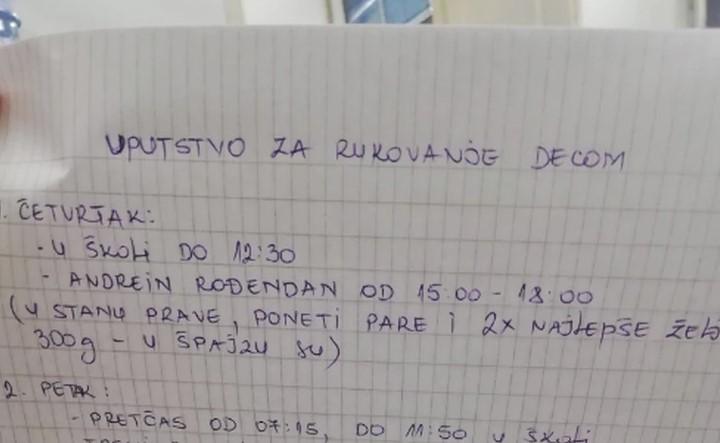 UPUTSTVO ZA RUKOVANJE DECOM
1. ČETVRTAK:
- U ŠKOLI DO 12:30
- ANDREIN ROĐENDAN OD 15:00 - 18:00
(U STANU PRAVE, PONETI PARE I 2X NAJLEPŠE ŽELJ
300g - U ŠPAJZU SU)
2. PETAK:
- PRETČAS OD 07:15, DO 11:50 U ŠKOLI